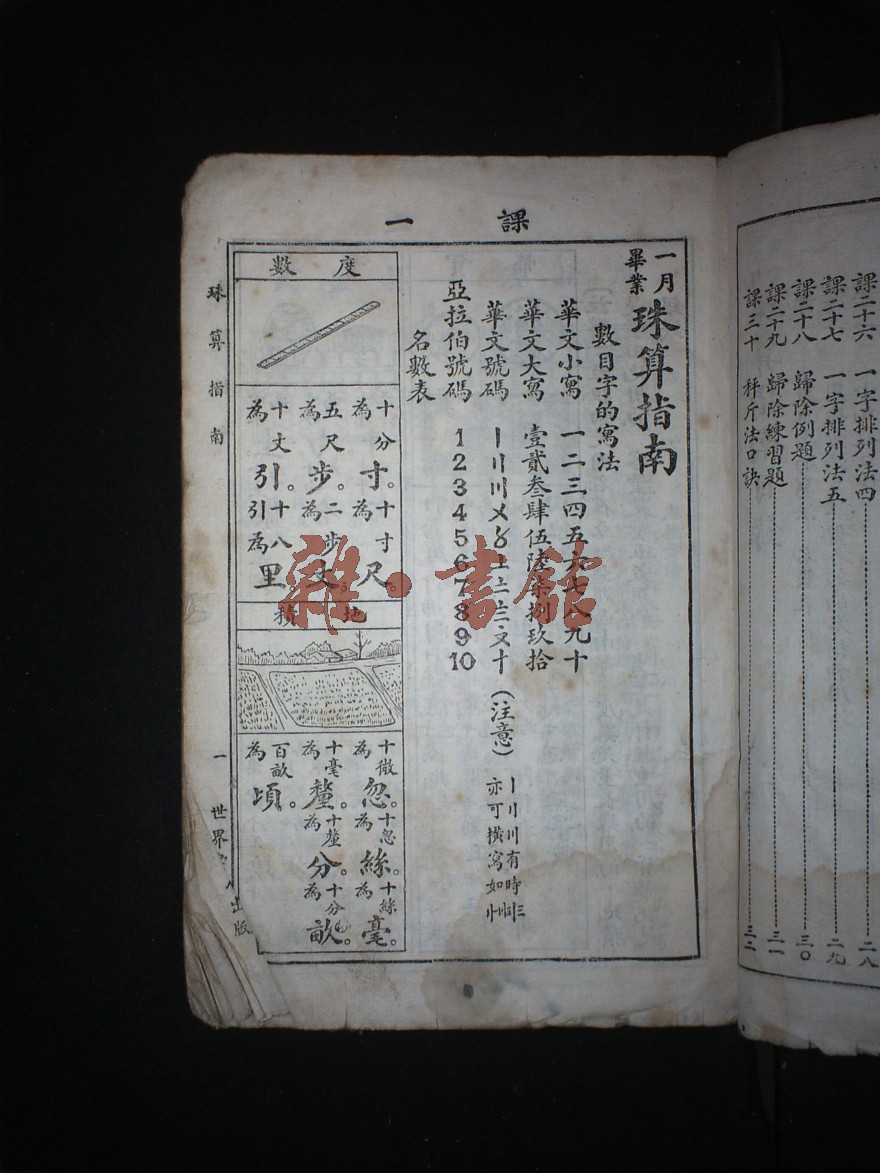 課二十六 一字排列法四 二八
課二十七 一字排列法五 二九
課二十八 歸除例題 三〇
課二十九 歸除練習題 三一
課三十 秤斤法口訣 三二
課一
一月畢業 珠算指南
數目字的寫法
華文小寫 一二三四五六七八九十
華文大寫 壹貳叁肆伍陸柒捌玖拾
華文號碼 〡〢〣〤〥〦〧〨〩十
(注意)〡〢〣有時
亦可橫寫如
亞拉伯號碼 1 2 3 4 5 6 7 8 9 10
名數表
度數
十分為寸。十寸為尺。
五尺為步。二步為丈。
十丈為引。十八引為里。
地積
十微為忽。十忽為絲。十絲為毫。
十毫為釐。十釐為分。十分為畝。
百畝為頃。
珠算指南
一
世界
出版
雜·書館